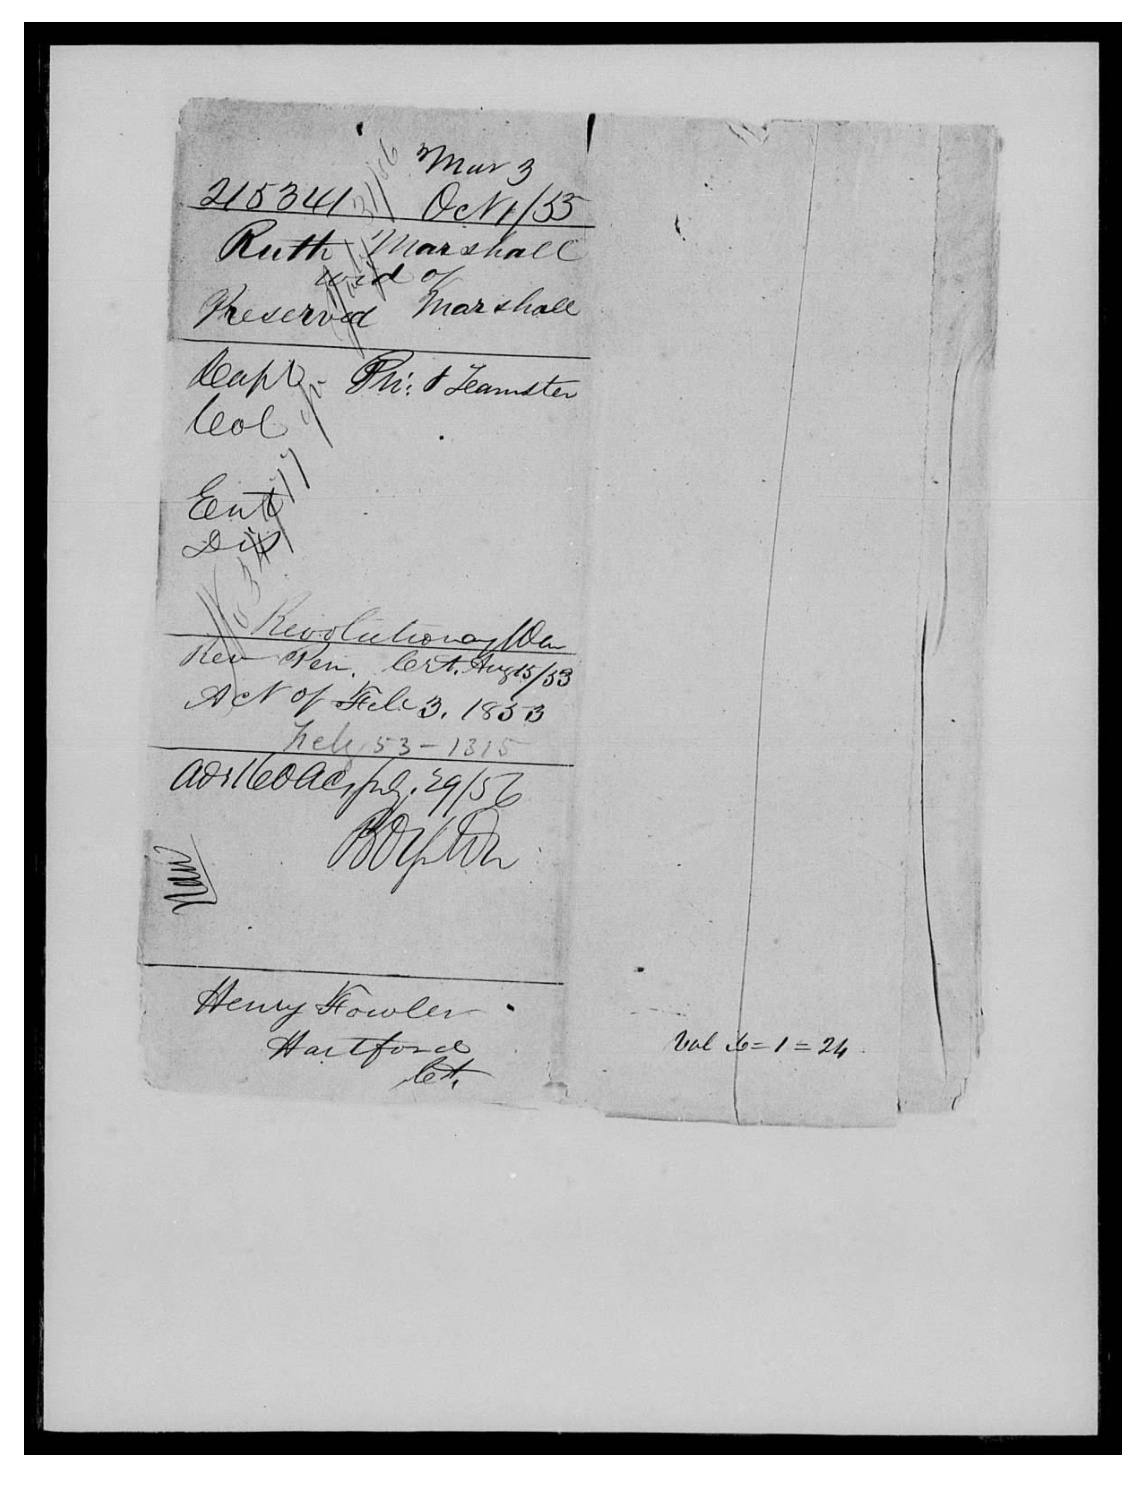 Mar 3
215341 Oct 1/55
Ruth Marshall
wid of
Preserved Marshall
Capt Pri: & Teamster
Col
Ent
Dis
Revolutionary War
Rev Pen. Cert. Aug 15/53
Act of Feb 3. 1853
Feby 53-1315
Adm 160 Acs July. 29/56
New
Henry Fowler
Hartford
Ct.
Vol 6=1=24